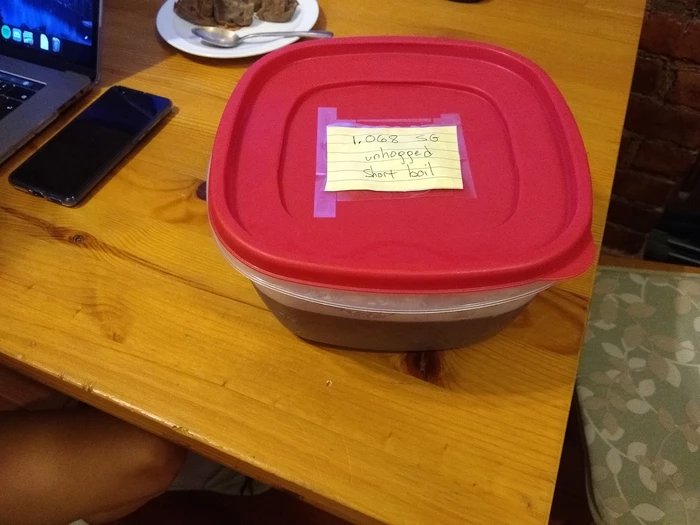 1.068 SG
unhogged
short boil